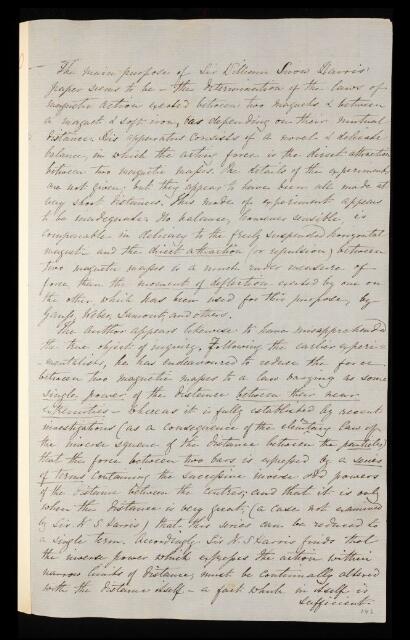 The main purpose of Sir William Snow Harris'
paper seems to be – the determination of the laws of
magnetic action exerted between two magnets & between
a magnet & soft iron, as depending on their mutual
distance. His apparatus consists of a novel & delicate
balance, in which the acting force is the direct attraction
between two magnetic masses. The details of the experiments
are not given; but they appear to have been all made at
very short distances. This mode of experiment appears
to be inadequate. No balance, however sensible, is
comparable in delicacy to the freely suspended horizontal
magnet – and the direct attraction (or repulsion) between
two magnetic masses is a much ruder measure of
force than the moment of deflection exerted by one on
the other, which has been used for this purpose, by
Gauss, Weber, Lamont, and others.
The author appears likewise to have misapprehended
the true object of inquiry. Following the earlier experi-
-mentalists, he has endeavoured to reduce the force
between two magnetic masses to a law varying as some
single power of the distance between their near
extremities – whereas it is fully established by recent
investigations (as a consequence of the elementary law of
the inverse square of the distance between the particles)
that the force between two bars is expressed by a series
of terms containing the successive inverse odd powers
of the distance between the centres; and that it is only
when the distance is very great (a case not examined
by Sir W S Harris) that this series can be reduced to
a single term. Accordingly Sir W. S Harris finds that
the inverse power which expresses the action within
narrow limits of distance, must be continually altered
with the distance itself – a fact which in itself is
sufficient